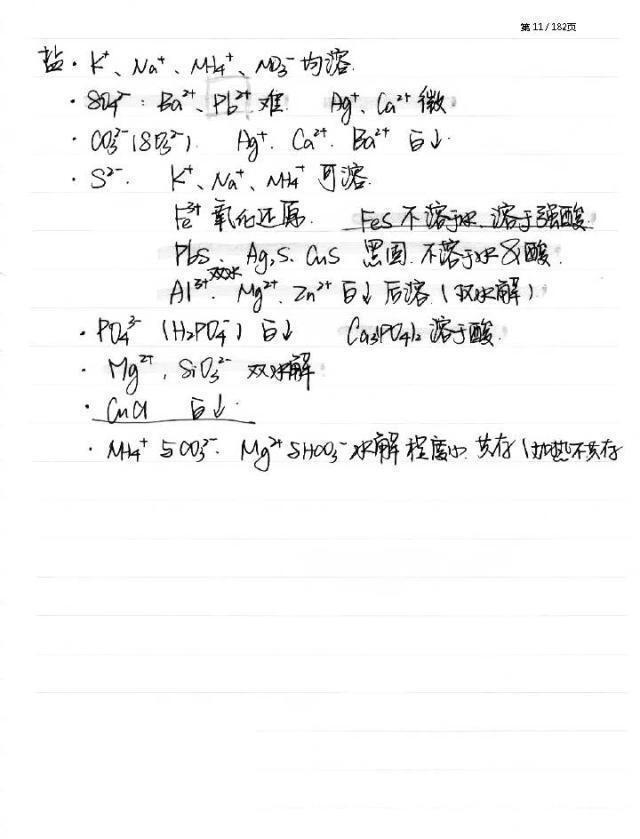 第 11 / 182页
盐·K⁺、Na⁺、NH₄⁺、NO₃⁻均溶.
·SO₄²⁻:Ba²⁺、Pb²⁺难. Ag⁺、Ca²⁺微.
·CO₃²⁻(SO₃²⁻). Ag⁺. Ca²⁺. Ba²⁺ 白↓.
·S²⁻. K⁺、Na⁺、NH₄⁺可溶.
Fe³⁺氧化还原. FeS不溶于水.溶于强酸
PbS、Ag₂S、CuS 黑固.不溶于水&酸.
双水
Al³⁺、Mg²⁺、Zn²⁺白↓后溶(双水解)
·PO₄³⁻(H₂PO₄⁻)白↓ Ca₃(PO₄)₂溶于酸.
·Mg²⁺,SiO₃²⁻双水解
·CuCl 白↓.
·NH₄⁺与CO₃²⁻. Mg²⁺与HCO₃⁻水解程度小.共存(加热不共存